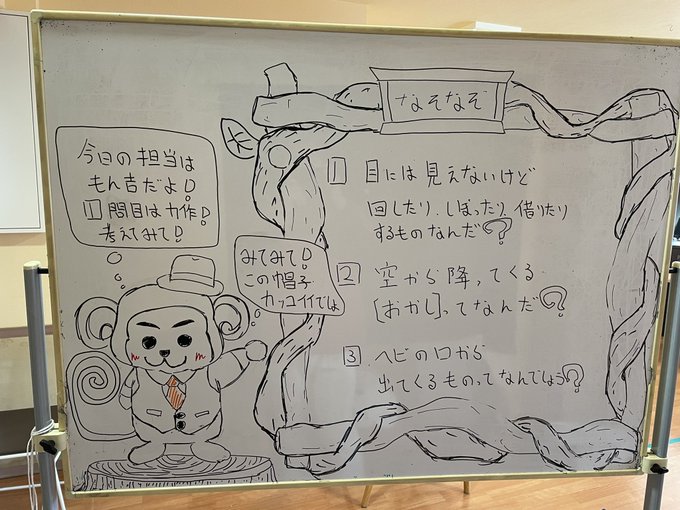 今日の担当は
もん吉だよ!
1問目は力作!
考えてみて!
みてみて!
この帽子
カッコイイでしょ
なぞなぞ
1 目には見えないけど
回したり、しぼったり、借りたり
するものなんだ?
2 空から降ってくる
[おかし]ってなんだ?
3 ヘビの口から
出てくるものってなんでしょう?